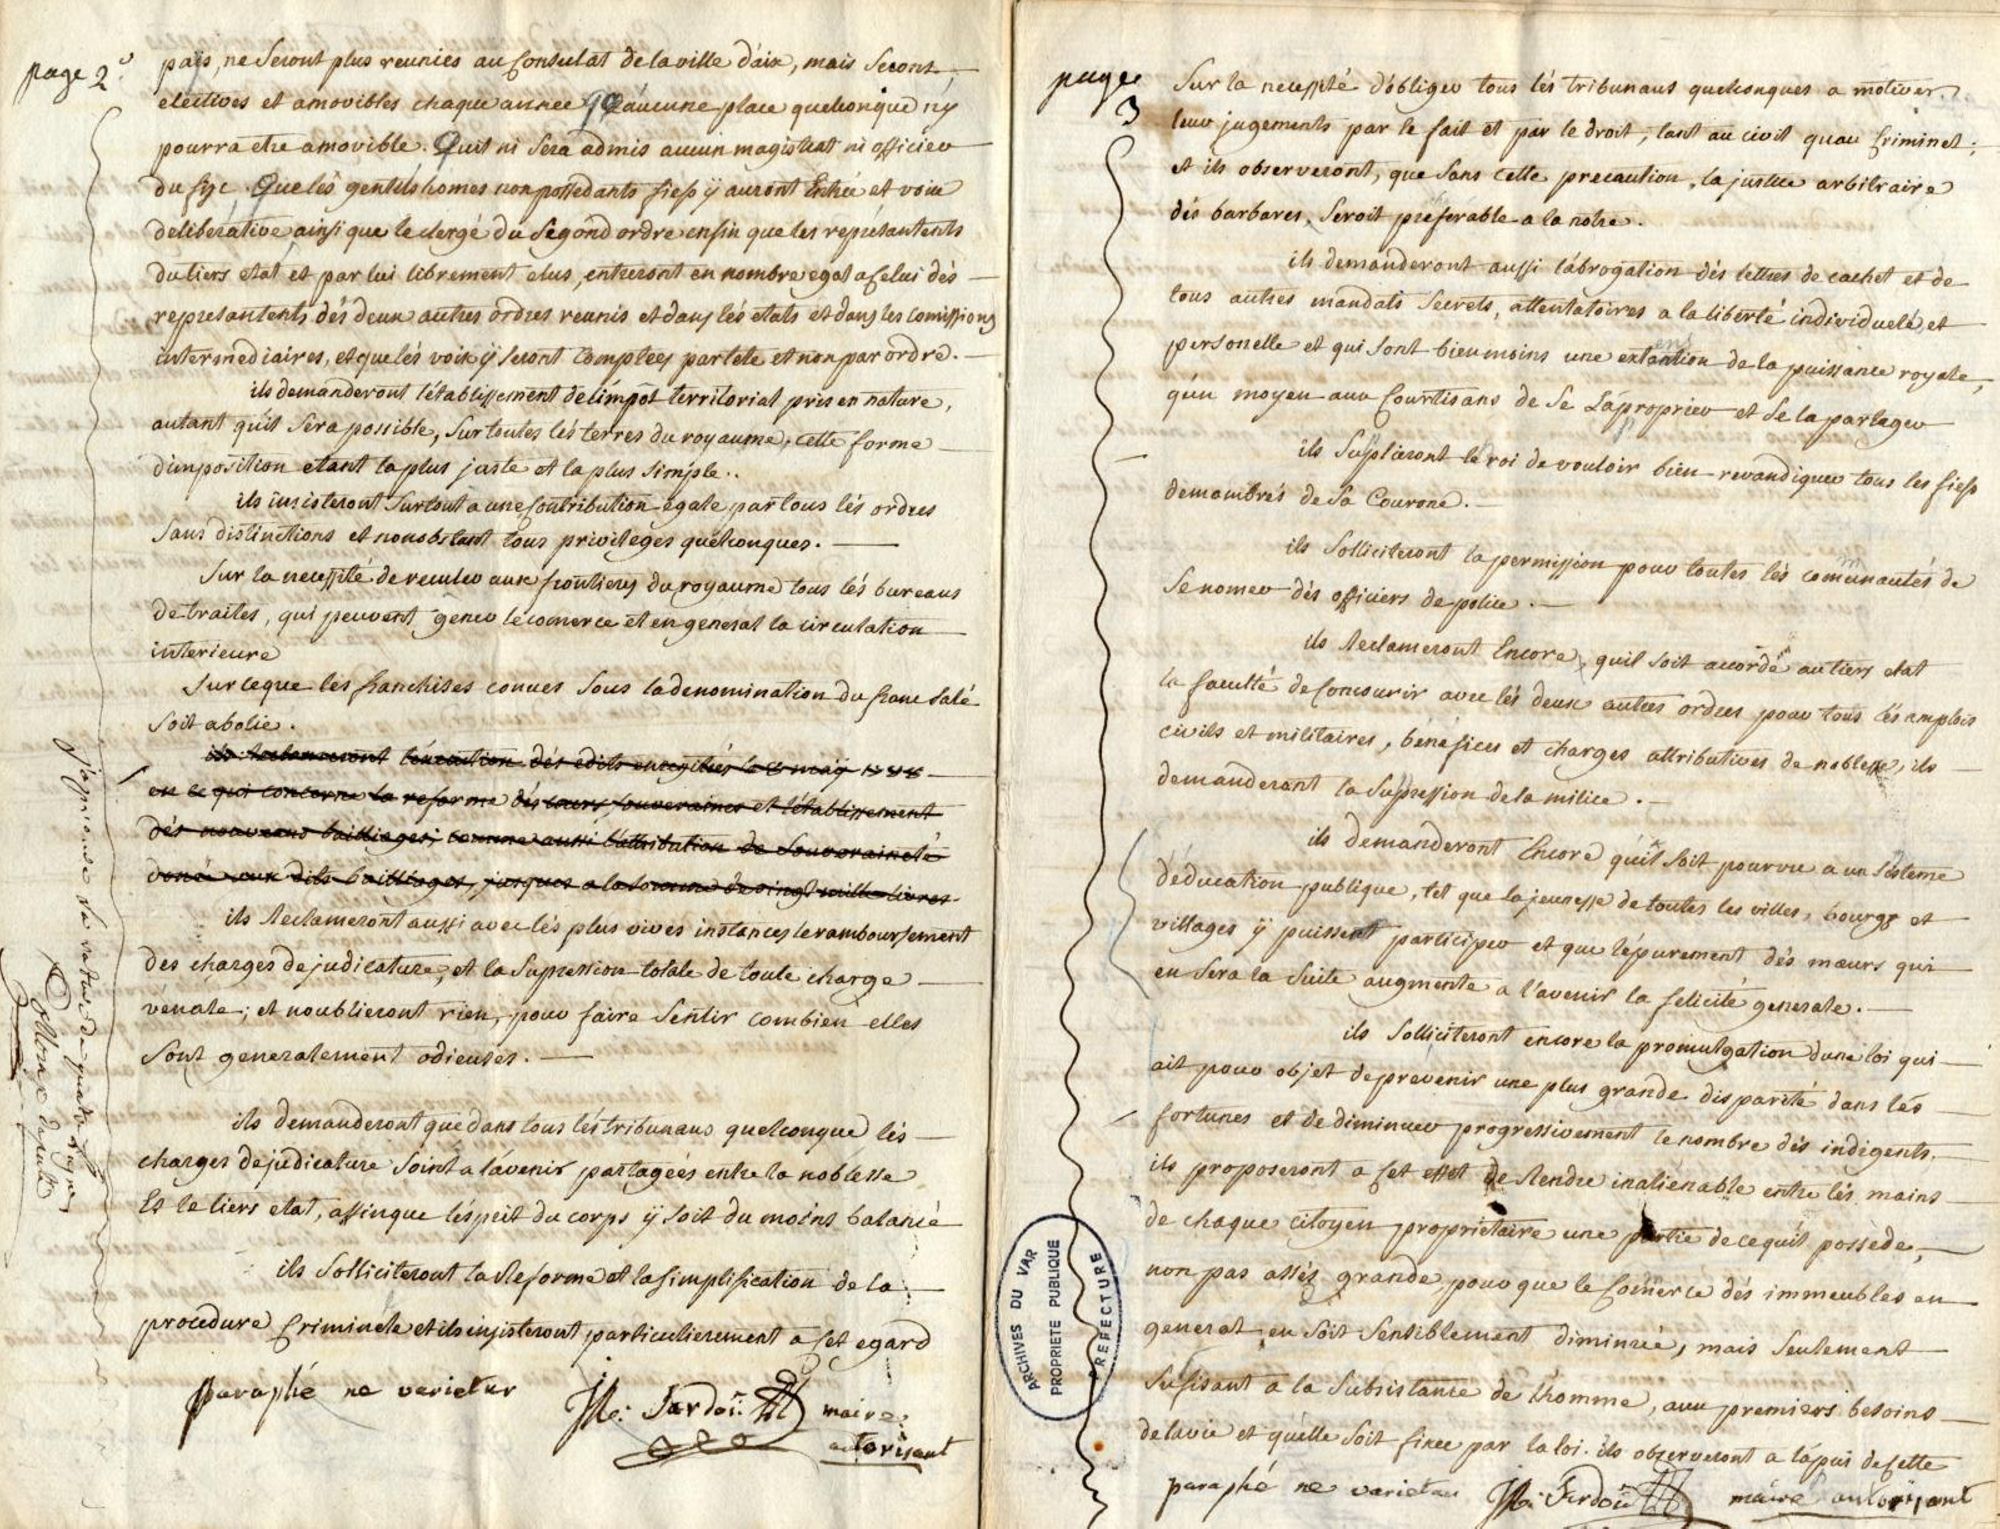 page 2e.
païs, ne Seront plus reunies au Consulat de la ville d'aix, mais Seront
electives et amovibles chaque année qu'aucune place quelconque n'y
pourra etre amovible. Quil ni Sera admis aucun magistrat ni officier
du fisc. Que lés gentilshomes non possedants fiefs ÿ auront Entrée et voix
deliberative ainsi que le clergé du Ségond ordre enfin que les representents
du tiers etat et par lui librement elus, entreront en nombre egal a Celui dés
representents dés deux autres ordres reunis et dans lés etats et dans les Comissions
intermediaires, et que lés voix ÿ Seront Comptées par tete et non par ordre.
ils demanderont l'établissement de l'impôt territorial pris en nature,
autant qu'il Sera possible, Sur toutes lés terres du royaume, cette forme
d'imposition etant la plus juste et la plus Simple..
ils insisteront Surtout a une Contribution égale par tous lés ordres
Sans distinctions et nonobstant tous privileges quelconques.
Sur la necessité de reculer aux frontieres du royaume tous lés bureaux
de traites, qui peuvent gener le comerce et en general la circulation
interieure
Sur ceque les franchises conues Sous la denomination du franc Salé
Soit abolie.
ils reclameront l'éxecution dés édits enregitrés le 8 maÿ 1788
en ce qui concerne la reforme dés cours souveraines et l'établissement
dés nouveaux bailliages; comme aussi l'attribution de Souveraineté
donée aux dits bailliages, jusques a la somme de vingt mille livres
ils Reclameront aussi avec lés plus vives instances le ramboursement
des charges de judicature, et la Supression totale de toute charge
vénale; et noublieront rien, pour faire Sentir combien elles
Sont generalement odieuses.
ils demanderont que dans tous lés tribunaux quelconque lés
charges de judicature Soint a l'avenir partagées entre la noblesse
Et le tiers etat, affinque l'ésprit du corps ÿ Soit du moins balancé
ils Solliciteront la Reforme et la Simplification de la
procedure Criminéle et ils insisteront, particulierement a Cet egard
paraphé ne varietur
maire
autorisant
j'approuve la rature de quatre lignes
page
3
Sur la necessité d'obliger tous lés tribunaux quelconques a motiver
leur jugements par le fait et par le droit, tant au civil quau Criminel;
et ils observeront, que Sans cette precaution, la justice arbitraire
dés barbares, Seroit préferable a la notre.
ils demanderont aussi l'abrogation dés lettres de cachet et de
tous autres mandats Secrets, attentatoires a la liberté individuelé et
personelle et qui Sont bien moins une extention de la puissance royale,
qu'un moyen aux Courtisans de Se L'aproprier et Se la partager
ils Suplieront le roi de vouloir bien revandiquer tous les fiefs
demambrés de Sa Courone.
ils Solliciteront la permission pour toutes lés comunautés de
Se nomer dés officiers de police.
ils Reclameront Encore, quil soit accordé au tiers etat
la faculté de Concourir avec lés deux autres ordres pour tous lés amplois
civils et militaires, bénéfices et charges attributives de noblesse, ils
demanderont la Supression de la milice.
ils demanderont Encore qu'il Soit pourvu a un Sisteme
d'éducation publique, tel que la jeunesse de toutes les villes, bourgs et
villages ÿ puissent participer et que l'épurement dés mœurs qui
en Sera la Suite augmente a l'avenir la felicité generale.
ils Solliciteront encore la promulgation dune loi qui
ait pour objet de prevenir une plus grande disparité dans lés
fortunes et de diminuer progressivement le nombre dés indigents.
ils proposeront a Cet effet de Rendre inalienable entre lés mains
de chaque citoyen propriétaire une partie de cequ'il possède,
non pas assés grande, pour que le Comerce dés immeubles en
general en Soit Sensiblement diminuée, mais Seulement
Sufisant a la Subsistance de l'homme, aux premiers besoins
de la vie et quelle Soit fixée par la loi. ils observeront a l'apui de Cette
paraphé ne varietur
maire autorisant
ARCHIVES DU VAR
PROPRIETE PUBLIQUE
PREFECTURE